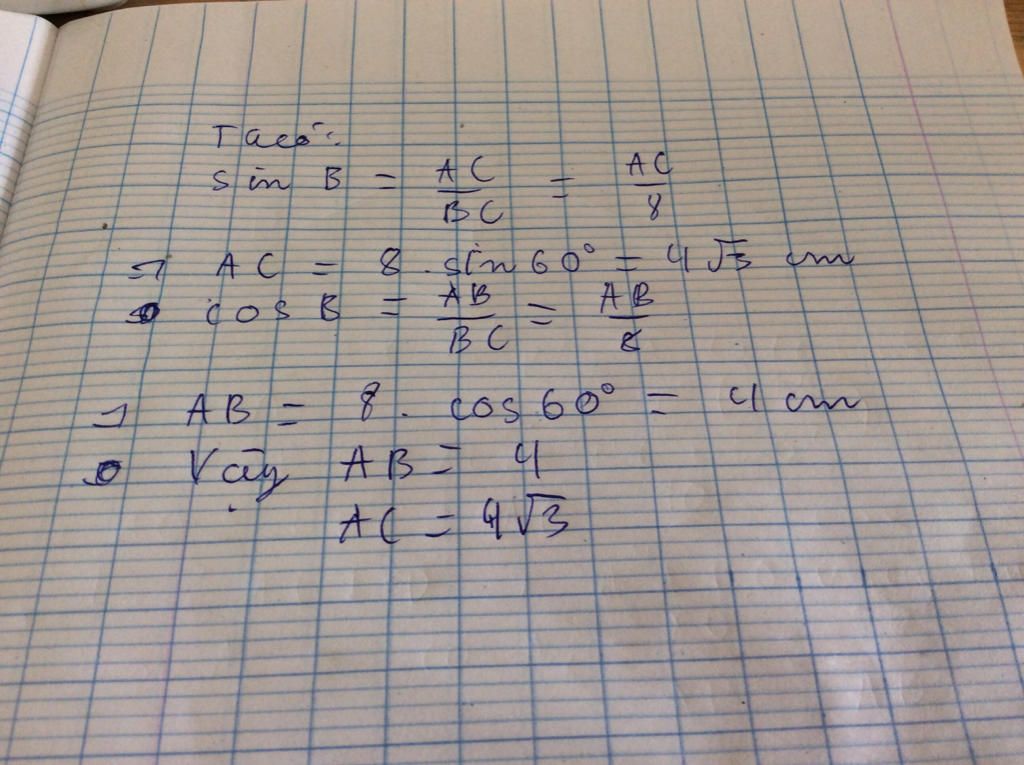 Ta có:
sin B = AC/BC = AC/8
=> AC = 8 . sin 60° = 4√3 cm
cos B = AB/BC = AB/8
=> AB = 8 . cos 60° = 4 cm
Vậy AB = 4
AC = 4√3